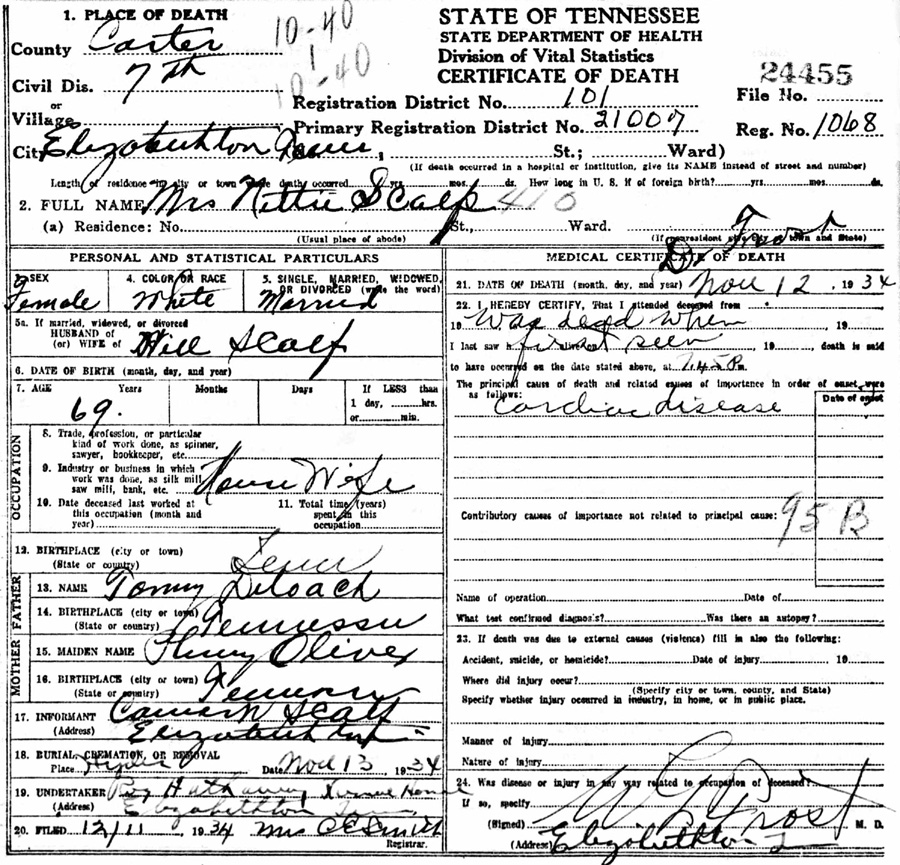 1. PLACE OF DEATH
County Carter
10-40
1
10-40
Civil Dis. 7th
or
Village
City Elizabethton Tenn, St.; Ward)
STATE OF TENNESSEE
STATE DEPARTMENT OF HEALTH
Division of Vital Statistics
CERTIFICATE OF DEATH
24455
File No.
Registration District No. 101
Primary Registration District No. 21007 Reg. No. 1068
(If death occurred in a hospital or institution, give its NAME instead of street and number)
Length of residence in city or town where death occurred yrs. mos. ds. How long in U. S. if of foreign birth? yrs. mos. ds.
2. FULL NAME Mrs Nettie Scalf 410
(a) Residence: No. St., Ward.
(Usual place of abode) (If nonresident give city or town and State)
Dr Frost
PERSONAL AND STATISTICAL PARTICULARS
SEX Female
4. COLOR OR RACE White
5. SINGLE, MARRIED, WIDOWED, OR DIVORCED (write the word) Married
5a. If married, widowed, or divorced
HUSBAND of
(or) WIFE of Will Scalf
6. DATE OF BIRTH (month, day, and year)
7. AGE Years Months Days If LESS than
1 day, hrs.
or min.
69.
OCCUPATION
8. Trade, profession, or particular
kind of work done, as spinner,
sawyer, bookkeeper, etc.
9. Industry or business in which
work was done, as silk mill,
saw mill, bank, etc. House Wife
10. Date deceased last worked at
this occupation (month and
year)
11. Total time (years)
spent in this
occupation
12. BIRTHPLACE (city or town)
(State or country) Tenn
FATHER
13. NAME Tommy Deloach
14. BIRTHPLACE (city or town)
(State or country) Tennessee
MOTHER
15. MAIDEN NAME Oliver
16. BIRTHPLACE (city or town)
(State or country) Tennessee
17. INFORMANT Scalf
(Address) Elizabethton
18. BURIAL, CREMATION, OR REMOVAL
Place Date Nov 13 1934
19. UNDERTAKER Hathaway
(Address) Elizabethton
20. FILED 12/11 1934 Mrs C E Smith
Registrar.
MEDICAL CERTIFICATE OF DEATH
21. DATE OF DEATH (month, day, and year) Nov 12, 1934
22. I HEREBY CERTIFY, That I attended deceased from
19 was dead when 19
I last saw h first seen alive on 19 , death is said
to have occurred on the date stated above, at 7.45 P m.
The principal cause of death and related causes of importance in order of onset were
as follows: Date of onset
Cardiac disease
Contributory causes of importance not related to principal cause:
95 B
Name of operation Date of
What test confirmed diagnosis? Was there an autopsy?
23. If death was due to external causes (violence) fill in also the following:
Accident, suicide, or homicide? Date of injury 19
Where did injury occur?
(Specify city or town, county, and State)
Specify whether injury occurred in industry, in home, or in public place.
Manner of injury
Nature of injury
24. Was disease or injury in any way related to occupation of deceased?
If so, specify
(Signed) Frost M. D.
(Address) Elizabethton